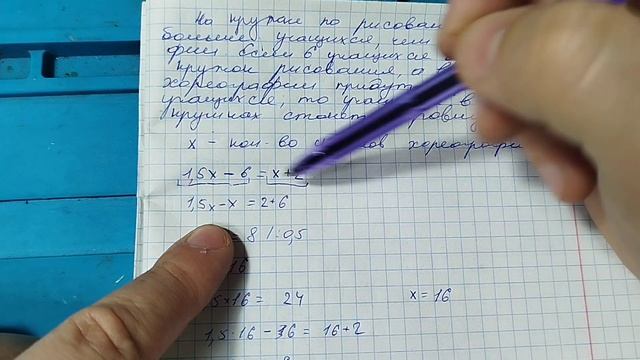 На кружок по рисован
больше учащихся, чем
фии. Если 6 учащихся
кружок рисования, а
хореографии прибут
учащихся, то уча в
кружках станет ровну
x - кол-во хореограф
1,5x - 6 = x + 2
1,5x - x = 2 + 6
= 8 /: 0,5
16
5×16 = 24
x = 16
1,5·16 - 36 = 16 + 2